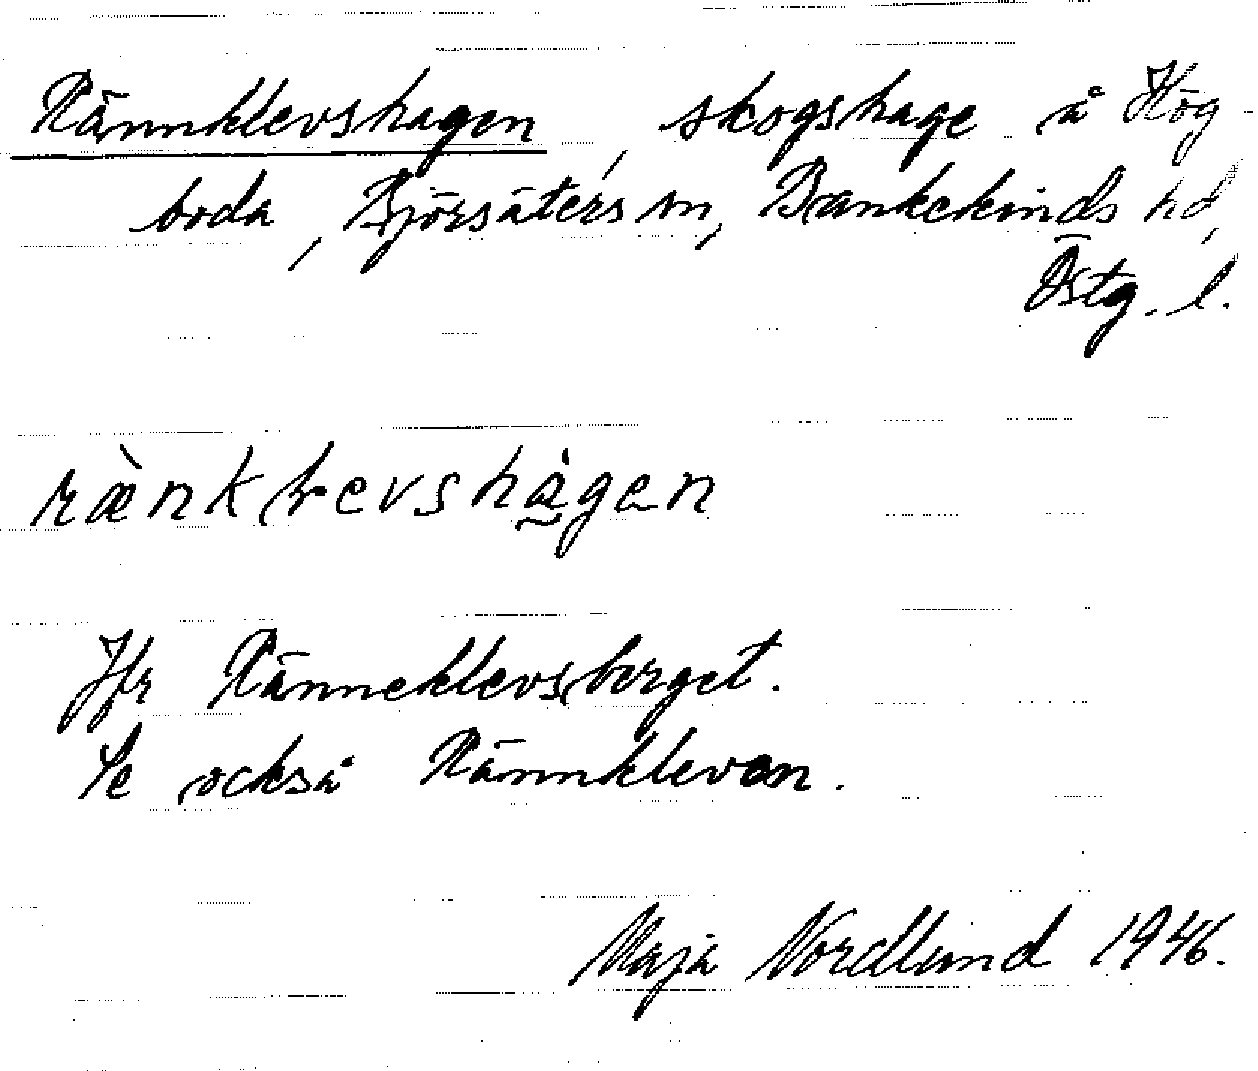 Rännklevshagen, skogshage å Hög-
boda, Björsäters sn, Bankekinds hd,
Östg. l.
rænkłevshagen
Jfr Ränneklevsberget.
Se också Rännkleven.
Maja Nordlund 1946.